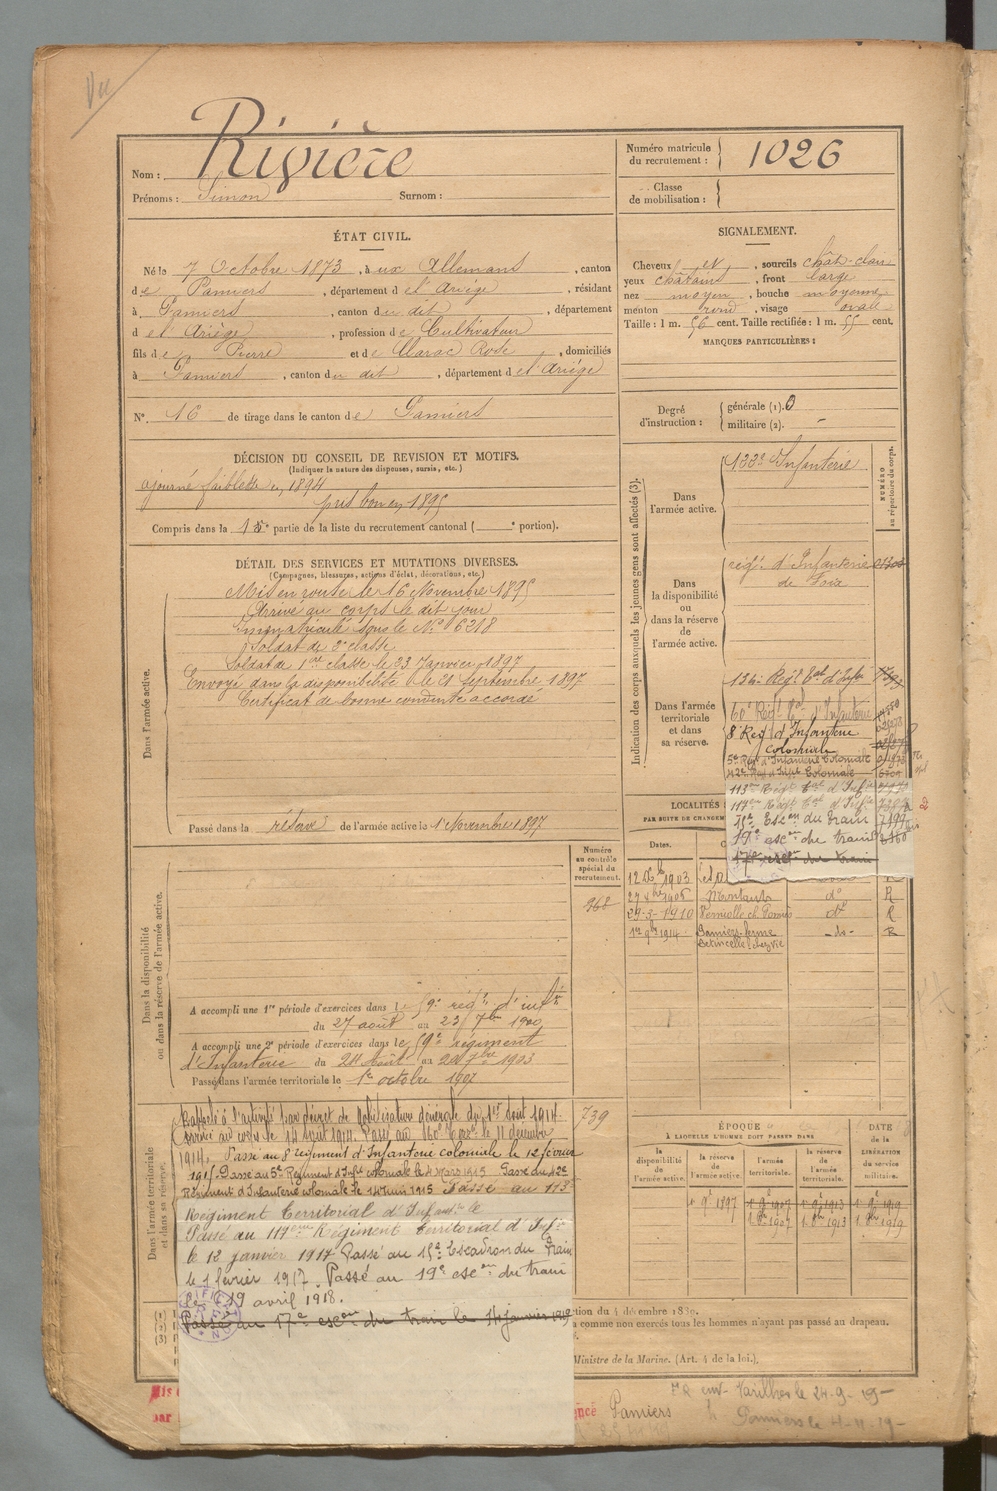 Vu
Nom : Rivière
Prénoms : Simon Surnom :
Numéro matricule du recrutement : 1026
Classe de mobilisation :
ÉTAT CIVIL.
Né le 7 Octobre 1873, à ux Allemans, canton
de Pamiers, département de l'Ariège, résidant
à Pamiers, canton du dit, département
de l'Ariège, profession de Cultivateur
fils de Pierre et de Marac Rose, domiciliés
à Pamiers, canton du dit, département de l'Ariège
N° 16 de tirage dans le canton de Pamiers
SIGNALEMENT.
Cheveux et, sourcils chât-clair
yeux châtains, front large
nez moyen, bouche moyenne
menton rond, visage ovale
Taille : 1 m. 56 cent. Taille rectifiée : 1 m. 55 cent.
MARQUES PARTICULIÈRES :
Degré d'instruction : générale (1). 0
militaire (2). -
DÉCISION DU CONSEIL DE REVISION ET MOTIFS.
(Indiquer la nature des dispenses, sursis, etc.)
ajourné faiblesse en 1894
pris bon en 1895
Compris dans la 1re partie de la liste du recrutement cantonal ( e portion).
DÉTAIL DES SERVICES ET MUTATIONS DIVERSES.
(Campagnes, blessures, actions d'éclat, décorations, etc.)
Dans l'armée active.
Mis en route le 16 Novembre 1895
Arrivé au corps le dit jour
Immatriculé sous le N° 6218
Soldat de 2e classe
Soldat de 1ère classe le 23 Janvier 1897
Envoyé dans la disponibilité le 21 Septembre 1897
Certificat de bonne conduite accordé
Passé dans la réserve de l'armée active le 1 Novembre 1897
Indication des corps auxquels les jeunes gens sont affectés (3).
NUMÉRO au répertoire du corps.
Dans l'armée active.
133e Infanterie
Dans la disponibilité ou dans la réserve de l'armée active.
régt d'Infanterie
de Foix
Dans l'armée territoriale et dans sa réserve.
134e Régt Tal d'Infie
60e Régt Tal d'Infanterie
8e Reg d'Infanterie
Coloniale
5e Reg d'Infanterie Coloniale
42e Reg d'Infie Coloniale
113e Régt Tal d'Infie
117e Régt Tal d'Infie
15e Escon du train
19e escon du train
17e escon du train
LOCALITÉS
PAR SUITE DE CHANGEM
Dates.
12 1903
27 1905 Montaut do R
29-3-1910 Verniolle ch. Pamiers do R
1er 9bre 1914 Pamiers ferme -do- R
Dans la disponibilité ou dans la réserve de l'armée active.
Numéro au contrôle spécial du recrutement.
968
A accompli une 1re période d'exercices dans le 59e régt d'infie
du 27 août au 23 7bre 1900
A accompli une 2e période d'exercices dans le 59e régiment
d'Infanterie du 24 Août au 20 7bre 1903
Passé dans l'armée territoriale le 1er octobre 1907
Dans l'armée territoriale et dans sa réserve.
739
Rappelé à l'activité par décret de mobilisation générale du 1er août 1914.
Arrivé au corps le 14 août 1914. Passé au 60e Terre le 11 décembre
1914. Passé au 8e régiment d'Infanterie coloniale le 12 février
1915 Passé au 5e Régiment d'Infie coloniale le 4 Mars 1915 Passé du 42e
Régiment d'Infanterie coloniale le 14 Juin 1915 Passé au 113e
Régiment Territorial d'Infanterie le
Passé au 117ème Régiment Territorial d'Infie
le 12 janvier 1917 Passé au 15e Escadron du Train
le 1 février 1917. Passé au 19e escon du train
le 19 avril 1918.
Passé au 17e escon du train le 14 janvier 1919
ÉPOQUE
À LAQUELLE L'HOMME DOIT PASSER DANS
la disponibilité de l'armée active.
la réserve de l'armée active.
l'armée territoriale.
la réserve de l'armée territoriale.
DATE de la LIBÉRATION du service militaire.
1er 9e 1897 1er 9e 1907 1er 9e 1913 1er 9e 1919
1er 8bre 1907 1er 8bre 1913 1er 8bre 1919
(1)
(2)
(3)
tion du 4 décembre 1830.
a comme non exercés tous les hommes n'ayant pas passé au drapeau.
Ministre de la Marine. (Art. 4 de la loi.)
Mis
par
Pamiers
Varilhes le 24-9-19-
Pamiers le 4-11-19-